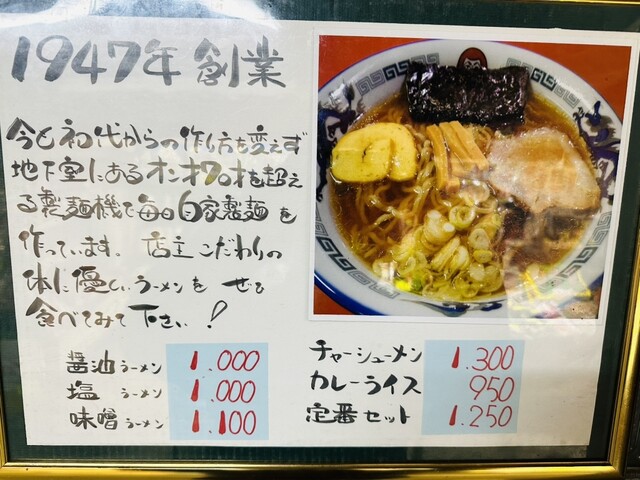 1947年 創業
今も初代からの作し方を変えず
地下室にあるオンオワロオを超え
る製麺機で毎日自家製麺を
作っています。店主こだわりの
体に優しいラーメンを ぜひ
食べてみて下さい!
醤油ラーメン 1.000
塩 ラーメン 1.000
味噌ラーメン 1.100
チャーシューメン 1.300
カレーライス 950
定番セット 1.250